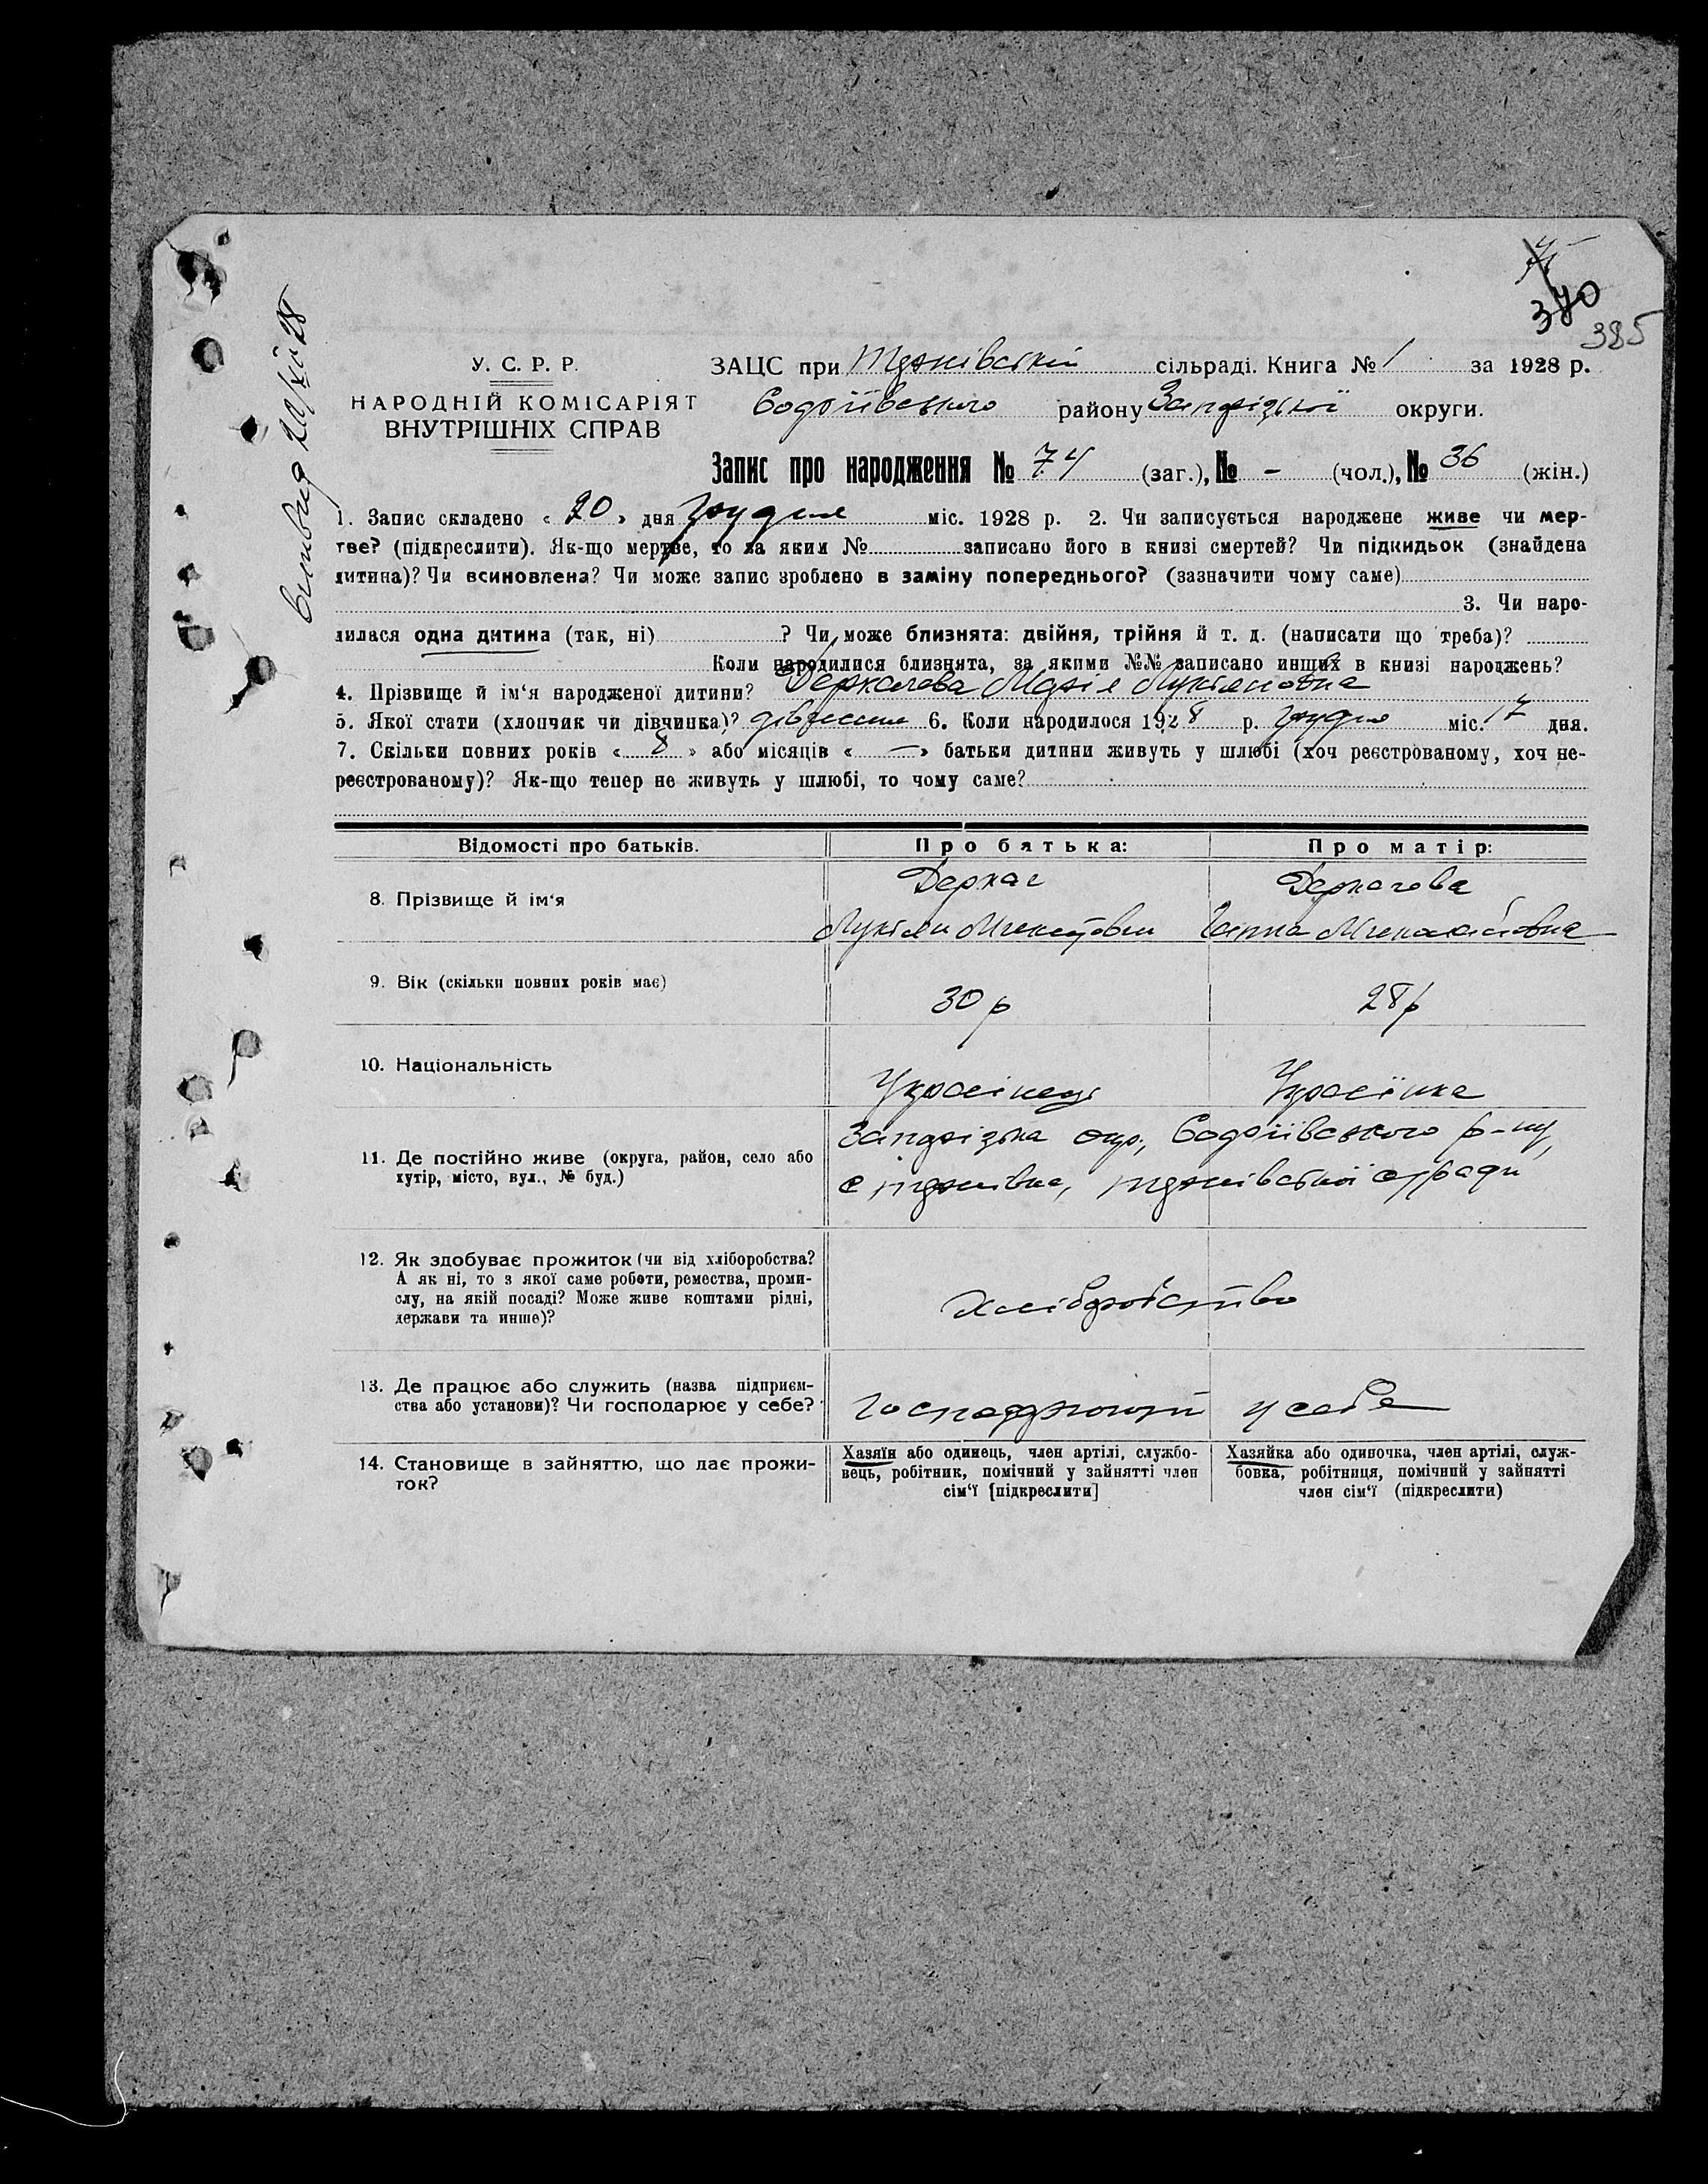 370
385
У. С. Р. Р.
НАРОДНІЙ КОМІСАРІЯТ
ВНУТРІШНІХ СПРАВ
ЗАЦС при сільраді. Книга № 1 за 1928 р.
району Запорізької округи.
Запис про народження № 74 (заг.), № - (чол.), № 36 (жін.)
1. Запис складено « 20 » дня грудня міс. 1928 р. 2. Чи записується народжене живе чи мер-
тве? (підкреслити). Як-що мертве, то за яким № записано його в книзі смертей? Чи підкидьок (знайдена
дитина)? Чи всиновлена? Чи може запис зроблено в заміну попереднього? (зазначити чому саме)
3. Чи наро-
дилася одна дитина (так, ні) ? Чи може близнята: двійня, трійня й т. д. (написати що треба)?
Коли народилися близнята, за якими №№ записано инших в книзі народжень?
4. Прізвище й ім‘я народженої дитини? Деркачова Марія Лукіяновна
5. Якої стати (хлопчик чи дівчинка)? 6. Коли народилося 1928 р. грудня міс. 17 дня.
7. Скільки повних років « 8 » або місяців « — » батьки дитини живуть у шлюбі (хоч реєстрованому, хоч не-
реєстрованому)? Як-що тепер не живуть у шлюбі, то чому саме?
Відомості про батьків. Про батька: Про матір:
8. Прізвище й ім‘я Деркач Деркачова
Лукіян
9. Вік (скільки повних років має) 30 р 28 р
10. Національність Українець Українка
11. Де постійно живе (округа, район, село або
хутір, місто, вул., № буд.)
Запорізька окр., р-ну,
с
12. Як здобуває прожиток (чи від хліборобства?
А як ні, то з якої саме роботи, ремества, проми-
слу, на якій посаді? Може живе коштами рідні,
держави та инше)?
Хліборобство
13. Де працює або служить (назва підприєм-
ства або установи)? Чи господарює у себе? у себе
14. Становище в зайняттю, що дає прожи-
ток?
Хазяїн або одинець, член артілі, службо-
вець, робітник, помічний у зайнятті член
сім‘ї [підкреслити]
Хазяйка або одиночка, член артілі, служ-
бовка, робітниця, помічний у зайнятті
член сім‘ї (підкреслити)